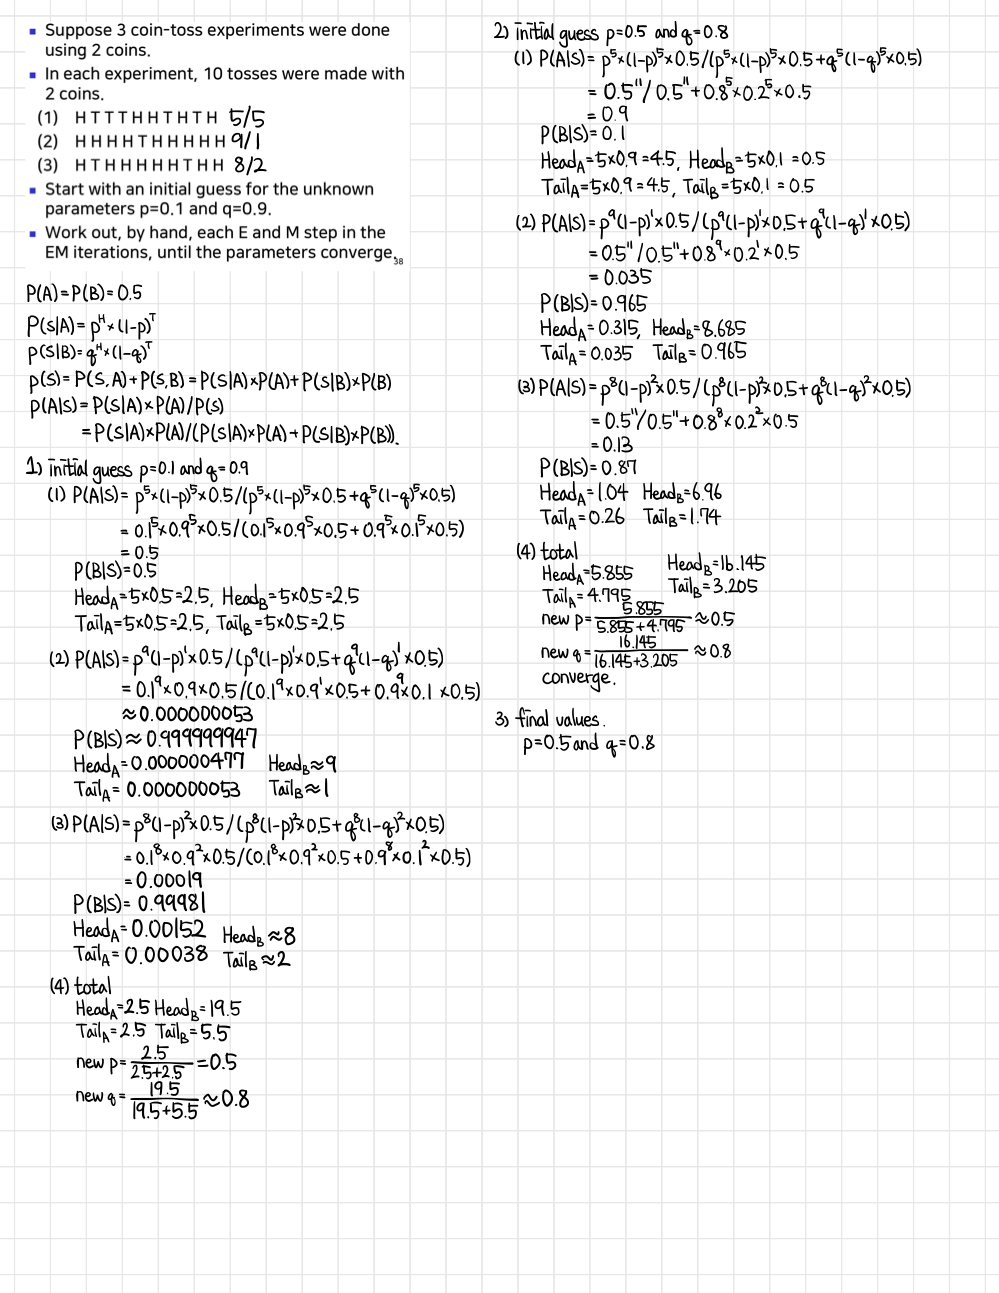 ▪ Suppose 3 coin-toss experiments were done
using 2 coins.
▪ In each experiment, 10 tosses were made with
2 coins.
(1) H T T T H H T H T H 5/5
(2) H H H H T H H H H H 9/1
(3) H T H H H H H T H H 8/2
▪ Start with an initial guess for the unknown
parameters p=0.1 and q=0.9.
▪ Work out, by hand, each E and M step in the
EM iterations, until the parameters converge.
38
P(A)=P(B)=0.5
P(S|A)=p^H×(1-p)^T
p(S|B)=q^H×(1-q)^T
p(S)=P(S,A)+P(S,B)=P(S|A)×P(A)+P(S|B)×P(B)
p(A|S)=P(S|A)×P(A)/P(S)
=P(S|A)×P(A)/(P(S|A)×P(A)+P(S|B)×P(B)).
1) initial guess p=0.1 and q=0.9
(1) P(A|S)=p^5×(1-p)^5×0.5/(p^5×(1-p)^5×0.5+q^5(1-q)^5×0.5)
=0.1^5×0.9^5×0.5/(0.1^5×0.9^5×0.5+0.9^5×0.1^5×0.5)
=0.5
P(B|S)=0.5
Head_A=5×0.5=2.5, Head_B=5×0.5=2.5
Tail_A=5×0.5=2.5, Tail_B=5×0.5=2.5
(2) P(A|S)=p^9(1-p)^1×0.5/(p^9(1-p)^1×0.5+q^9(1-q)^1×0.5)
=0.1^9×0.9×0.5/(0.1^9×0.9^1×0.5+0.9^9×0.1×0.5)
≈0.000000053
P(B|S)≈0.999999947
Head_A=0.000000477 Head_B≈9
Tail_A=0.000000053 Tail_B≈1
(3) P(A|S)=p^8(1-p)^2×0.5/(p^8(1-p)^2×0.5+q^8(1-q)^2×0.5)
=0.1^8×0.9^2×0.5/(0.1^8×0.9^2×0.5+0.9^8×0.1^2×0.5)
=0.00019
P(B|S)=0.99981
Head_A=0.00152 Head_B≈8
Tail_A=0.00038 Tail_B≈2
(4) total
Head_A=2.5 Head_B=19.5
Tail_A=2.5 Tail_B=5.5
new p=2.5/(2.5+2.5)=0.5
new q=19.5/(19.5+5.5)≈0.8
2) initial guess p=0.5 and q=0.8
(1) P(A|S)=p^5×(1-p)^5×0.5/(p^5×(1-p)^5×0.5+q^5(1-q)^5×0.5)
=0.5^11/0.5^11+0.8^5×0.2^5×0.5
=0.9
P(B|S)=0.1
Head_A=5×0.9=4.5, Head_B=5×0.1=0.5
Tail_A=5×0.9=4.5, Tail_B=5×0.1=0.5
(2) P(A|S)=p^9(1-p)^1×0.5/(p^9(1-p)^1×0.5+q^9(1-q)^1×0.5)
=0.5^11/0.5^11+0.8^9×0.2^1×0.5
=0.035
P(B|S)=0.965
Head_A=0.315, Head_B=8.685
Tail_A=0.035 Tail_B=0.965
(3) P(A|S)=p^8(1-p)^2×0.5/(p^8(1-p)^2×0.5+q^8(1-q)^2×0.5)
=0.5^11/0.5^11+0.8^8×0.2^2×0.5
=0.13
P(B|S)=0.87
Head_A=1.04 Head_B=6.96
Tail_A=0.26 Tail_B=1.74
(4) total
Head_A=5.855 Head_B=16.145
Tail_A=4.795 Tail_B=3.205
new p=5.855/(5.855+4.795)≈0.5
new q=16.145/(16.145+3.205)≈0.8
converge.
3) final values.
p=0.5 and q=0.8